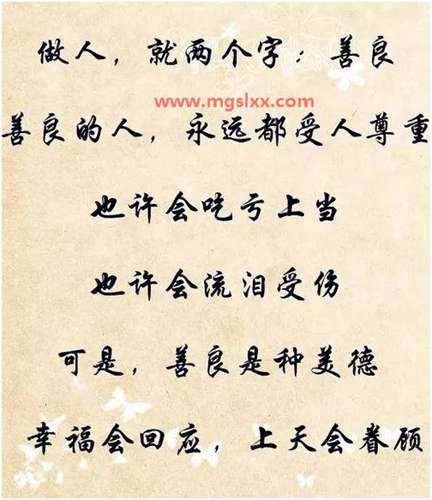 做人，就两个字：善良
www.mgslxx.com
善良的人，永远都受人尊重
也许会吃亏上当
也许会流泪受伤
可是，善良是种美德
幸福会回应，上天会眷顾